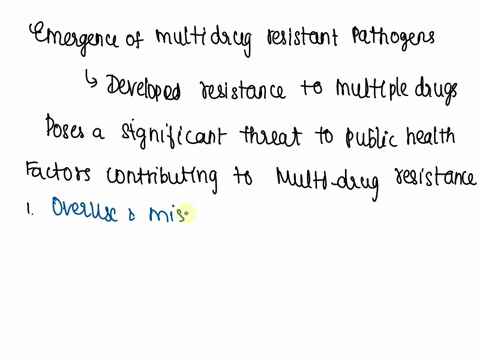 Emergence of multidrug resistant pathogens
↳ Developed resistance to multiple drugs
Poses a significant threat to public health
Factors contributing to Multi-drug resistance
1. Overuse & mis